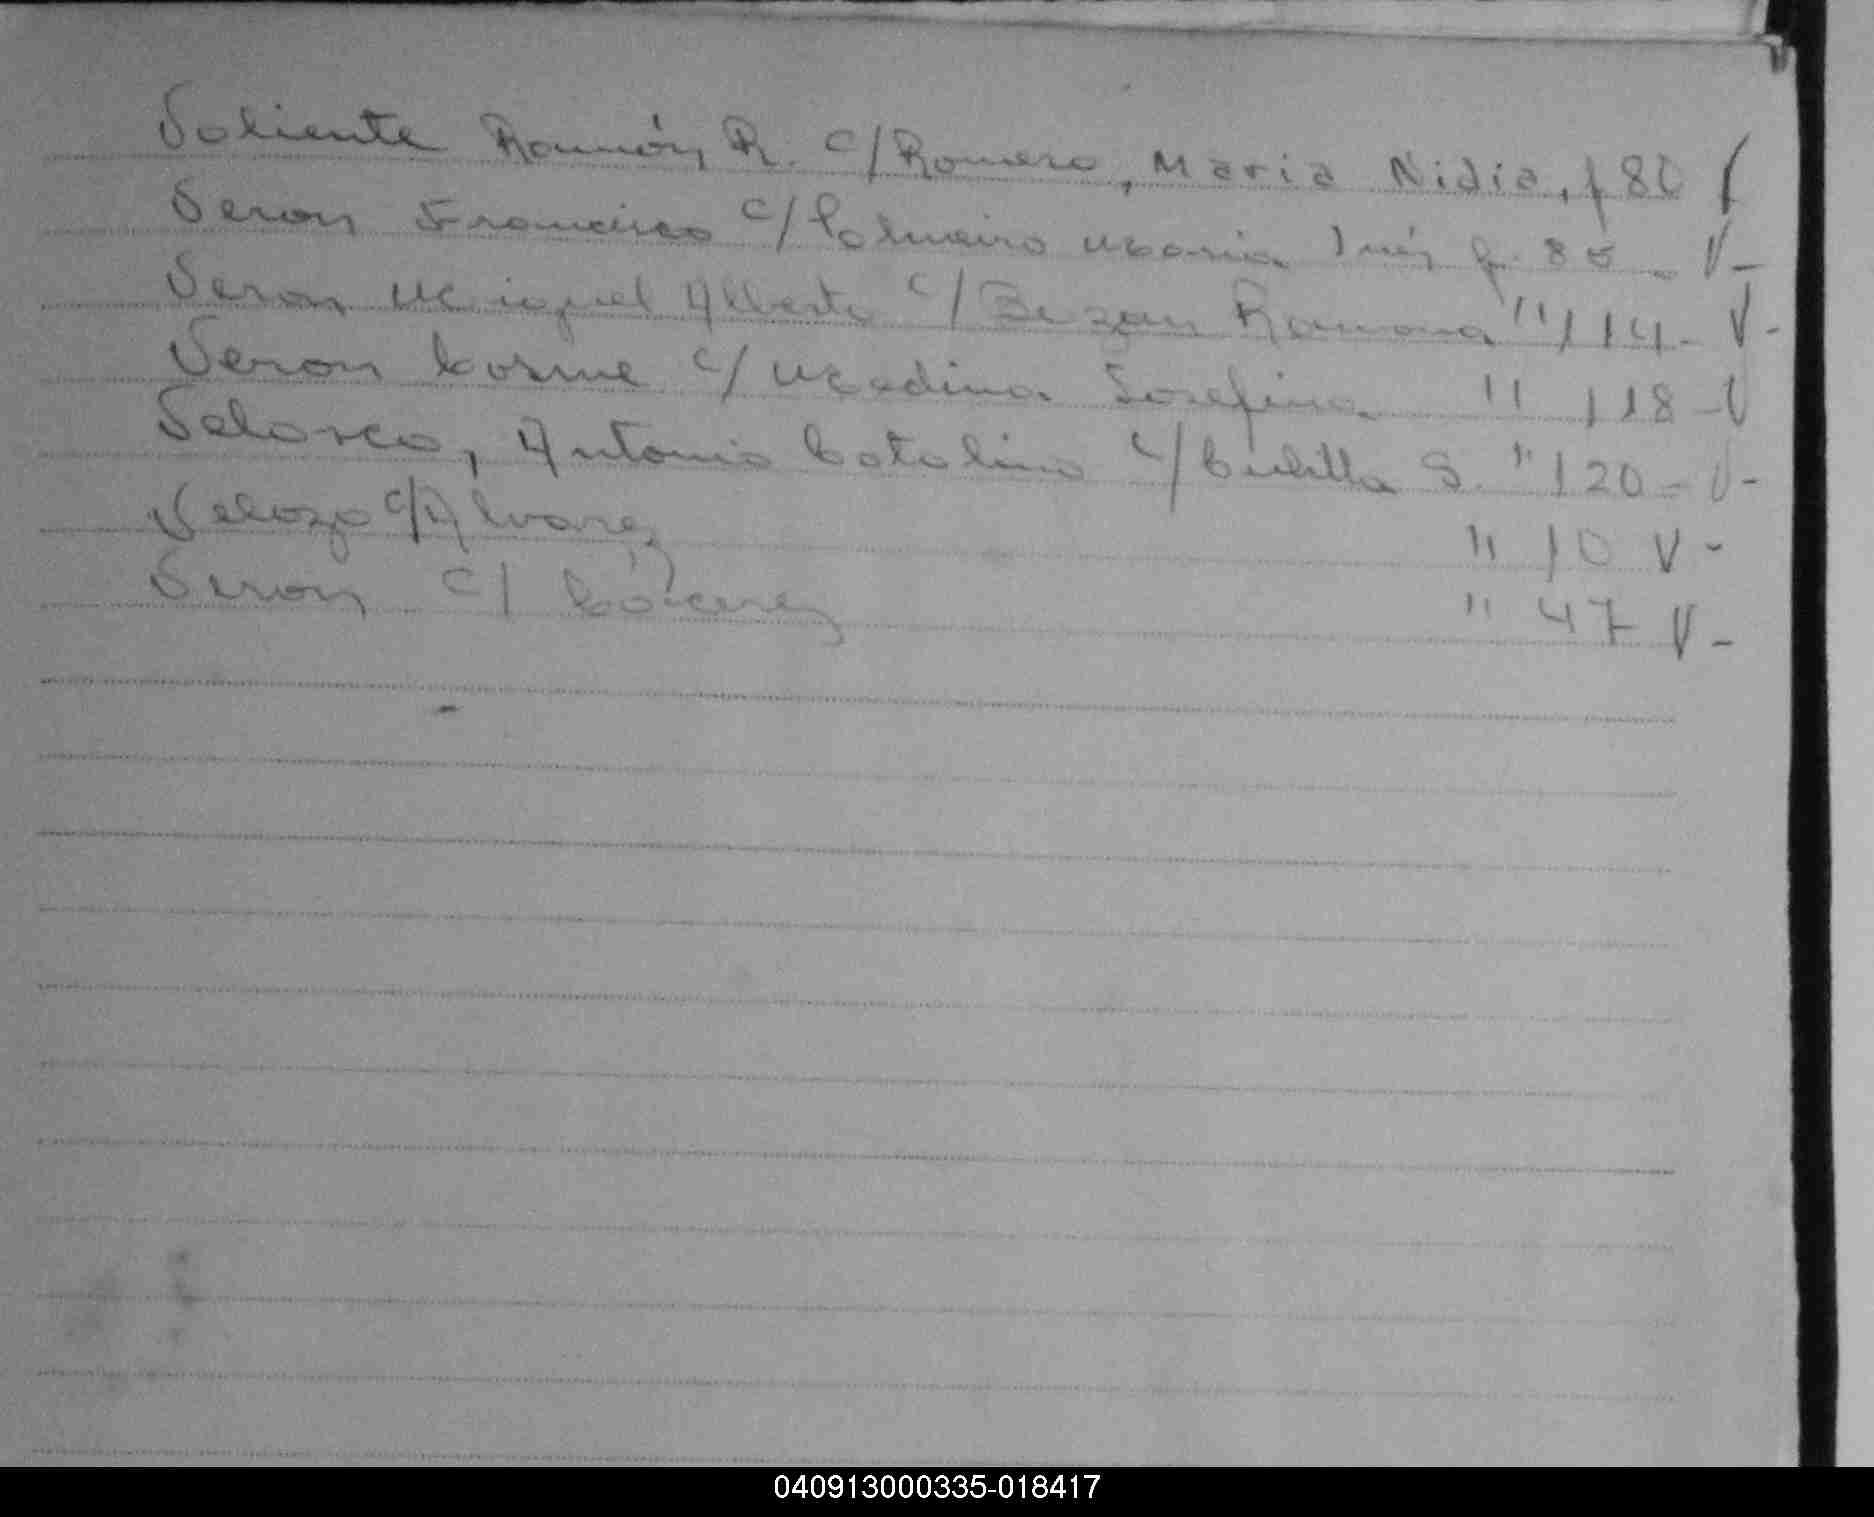 Valiente Ramón R. c/Romero, Maria Nidia, f 80
Veron Francisco c/ Maria Inés f. 85 - V-
Veron Miguel Alberto c/ Ramona " 114- V-
Veron Cosme c/ Medina Josefina " 118 -V
Velasco, Antonio Catalino c/ S. " 120- V-
Velozo c/Alvarez " 10 V-
Veron c/ Cáceres " 47 V-
040913000335-018417